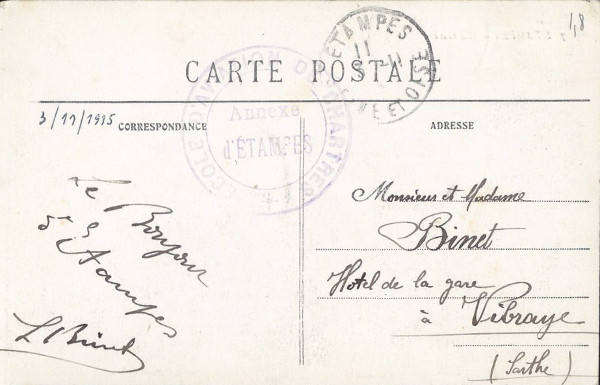 1,8
ÉTAMPES
11
11
SEINE ET OISE
CARTE POSTALE
ÉCOLE D'AVIATION DE CHARTRES
Annexe
d'ÉTAMPES
3/11/1915
CORRESPONDANCE
ADRESSE
Le Bonjour
d'Etampes
L Binet
Monsieur et Madame
Binet
Hotel de la gare
à Vibraye
(Sarthe)